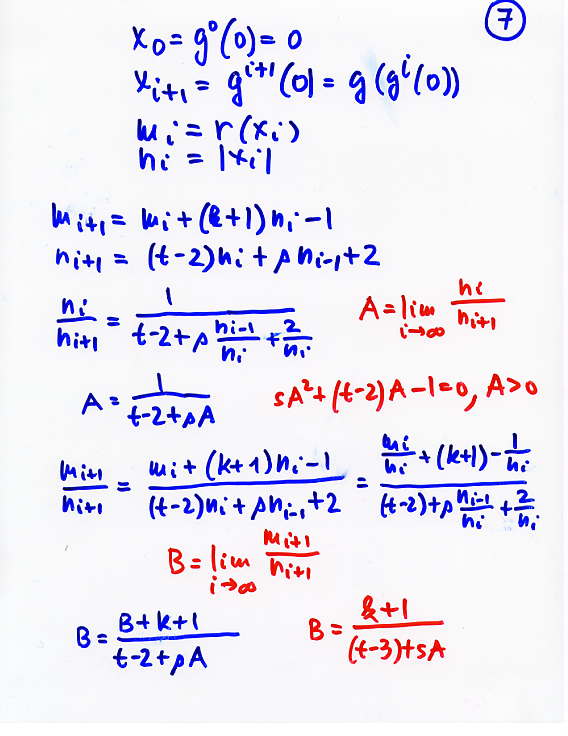 7
x₀ = g⁰(0) = 0
xᵢ₊₁ = gⁱ⁺¹(0) = g(gⁱ(0))
mᵢ = r(xᵢ)
nᵢ = |xᵢ|
mᵢ₊₁ = mᵢ + (k+1)nᵢ - 1
nᵢ₊₁ = (t-2)nᵢ + snᵢ₋₁ + 2
nᵢ/nᵢ₊₁ = 1/(t-2+s nᵢ₋₁/nᵢ + 2/nᵢ) A = lim i→∞ nᵢ/nᵢ₊₁
A = 1/(t-2+sA) sA² + (t-2)A - 1 = 0, A > 0
mᵢ₊₁/nᵢ₊₁ = (mᵢ + (k+1)nᵢ - 1)/((t-2)nᵢ + snᵢ₋₁ + 2) = (mᵢ/nᵢ + (k+1) - 1/nᵢ)/((t-2) + s nᵢ₋₁/nᵢ + 2/nᵢ)
B = lim i→∞ mᵢ₊₁/nᵢ₊₁
B = (B+k+1)/(t-2+sA) B = (k+1)/((t-3)+sA)